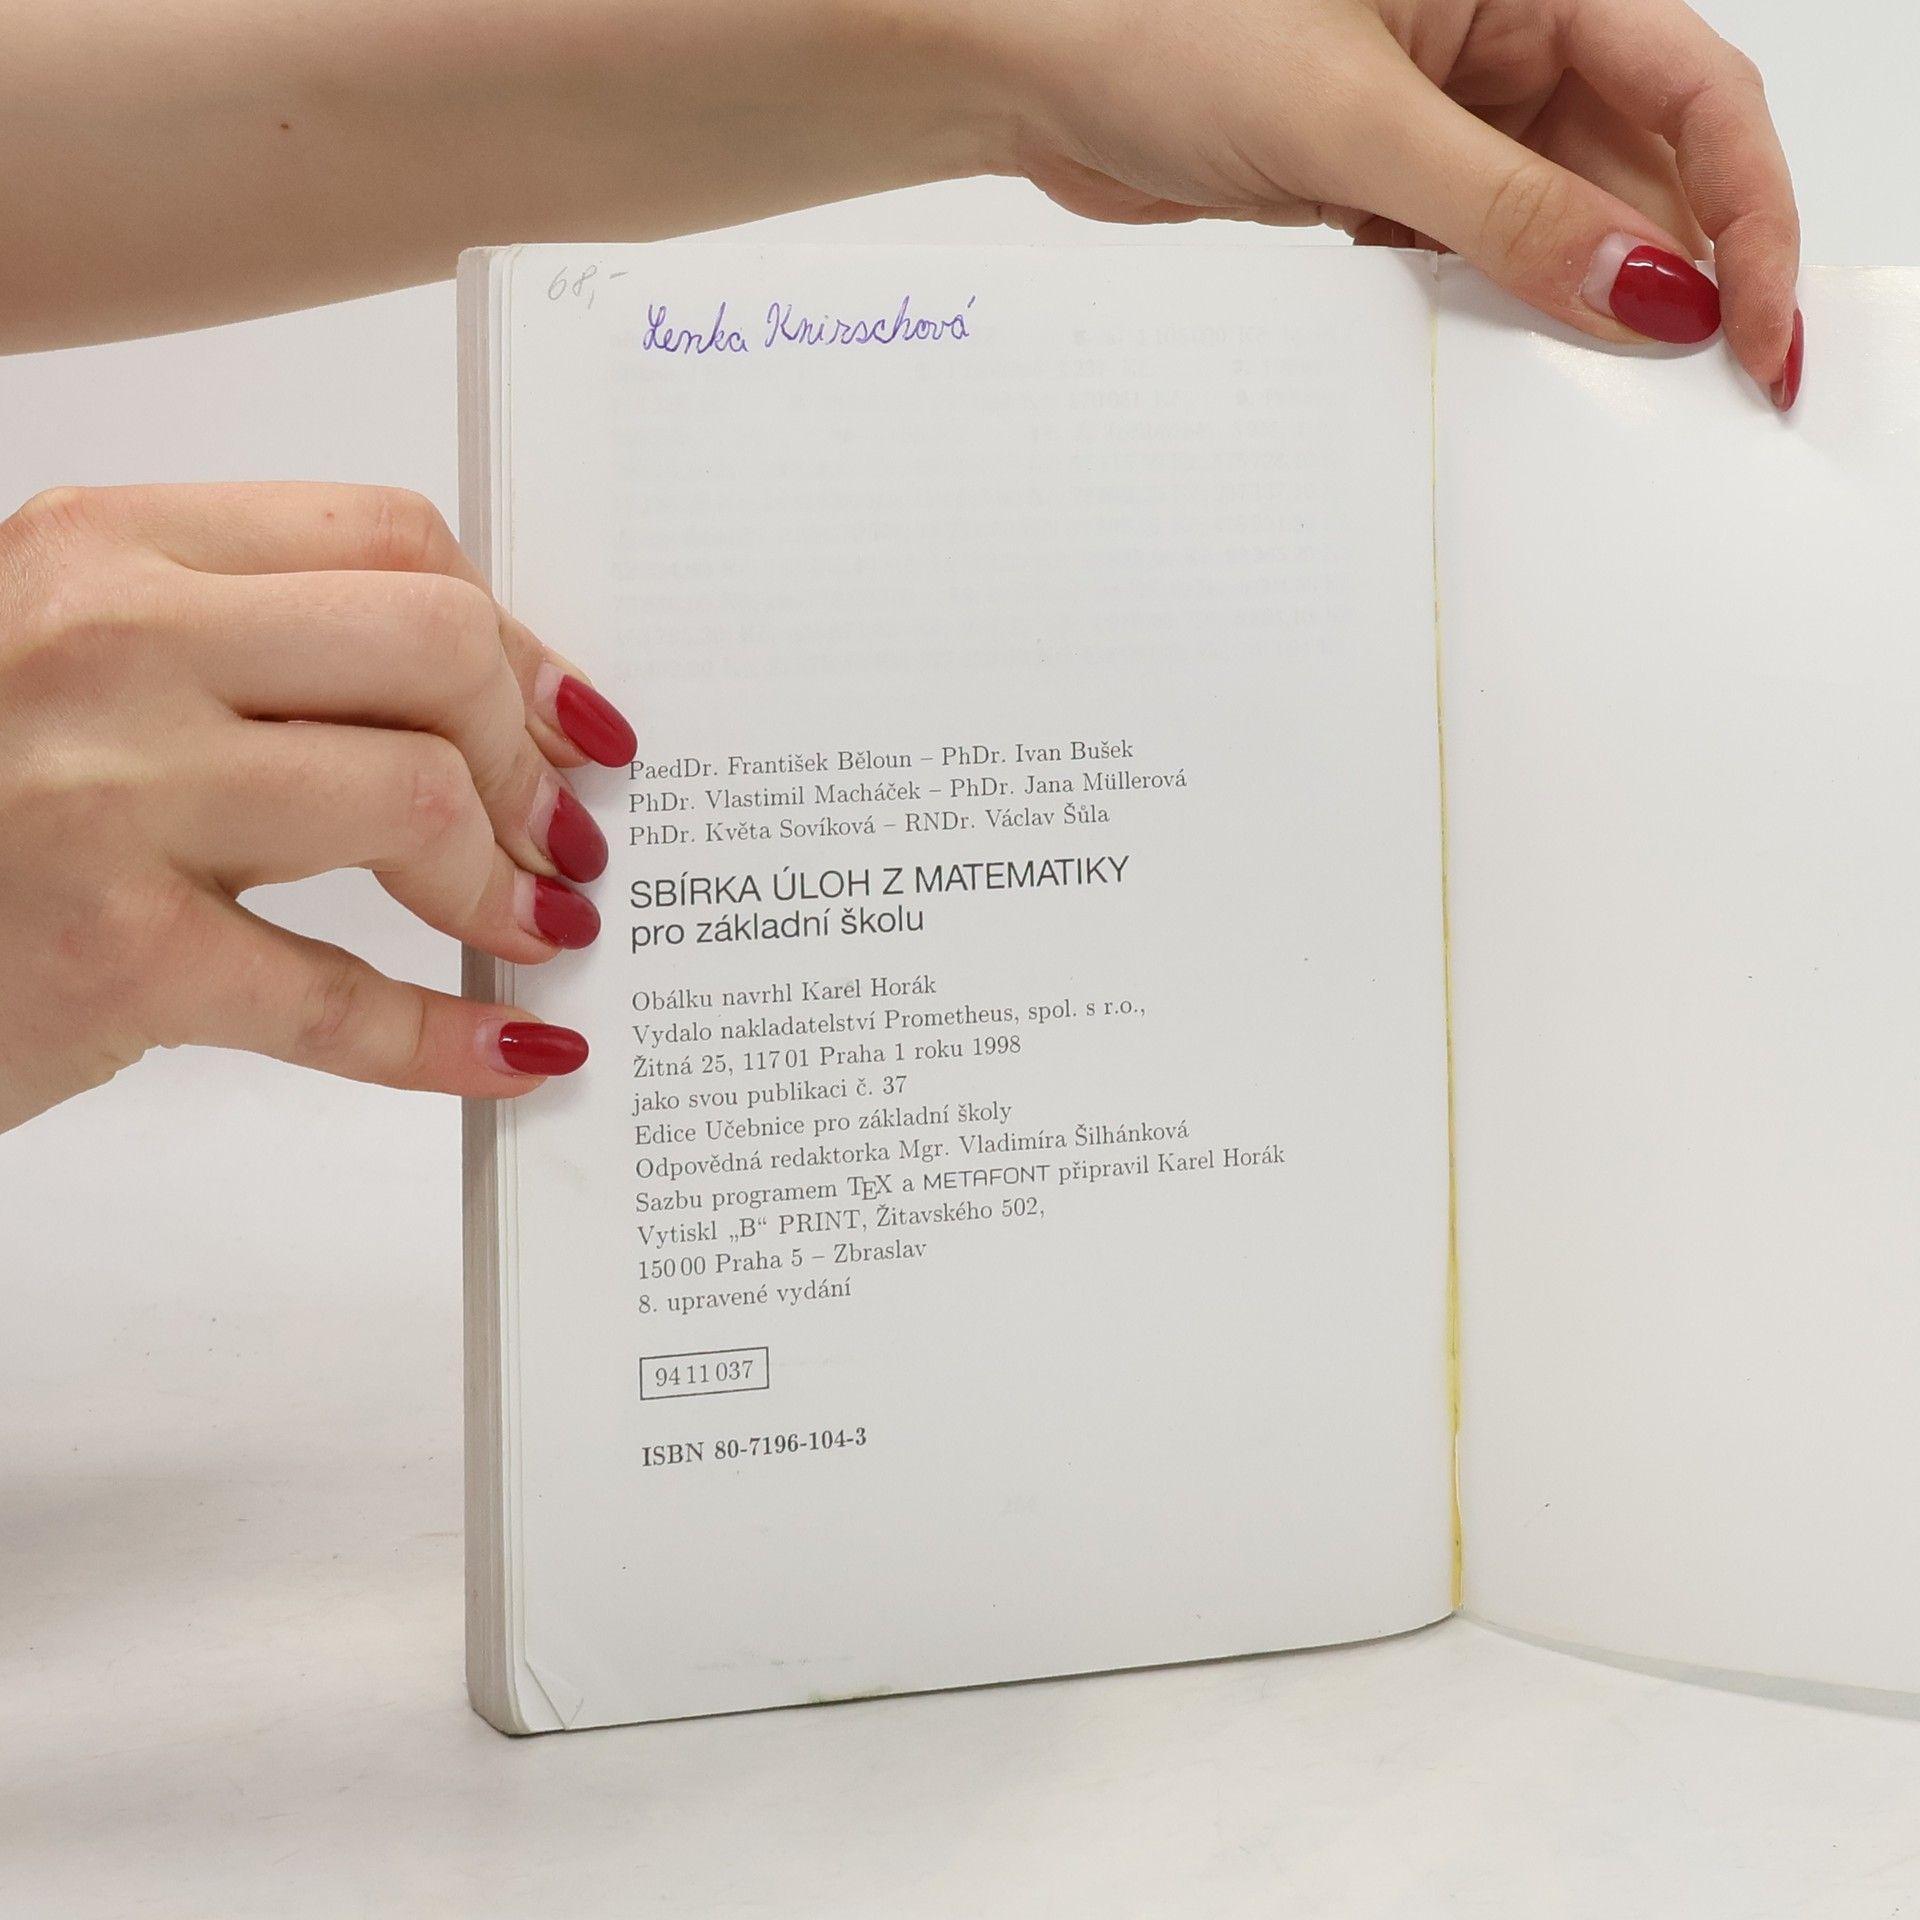 68,-
Lenka Knirschová
PaedDr. František Běloun – PhDr. Ivan Bušek
PhDr. Vlastimil Macháček – PhDr. Jana Müllerová
PhDr. Květa Sovíková – RNDr. Václav Šůla
SBÍRKA ÚLOH Z MATEMATIKY
pro základní školu
Obálku navrhl Karel Horák
Vydalo nakladatelství Prometheus, spol. s r.o.,
Žitná 25, 117 01 Praha 1 roku 1998
jako svou publikaci č. 37
Edice Učebnice pro základní školy
Odpovědná redaktorka Mgr. Vladimíra Šilhánková
Sazbu programem TEX a METAFONT připravil Karel Horák
Vytiskl „B“ PRINT, Žitavského 502,
150 00 Praha 5 – Zbraslav
8. upravené vydání
94 11 037
ISBN 80-7196-104-3